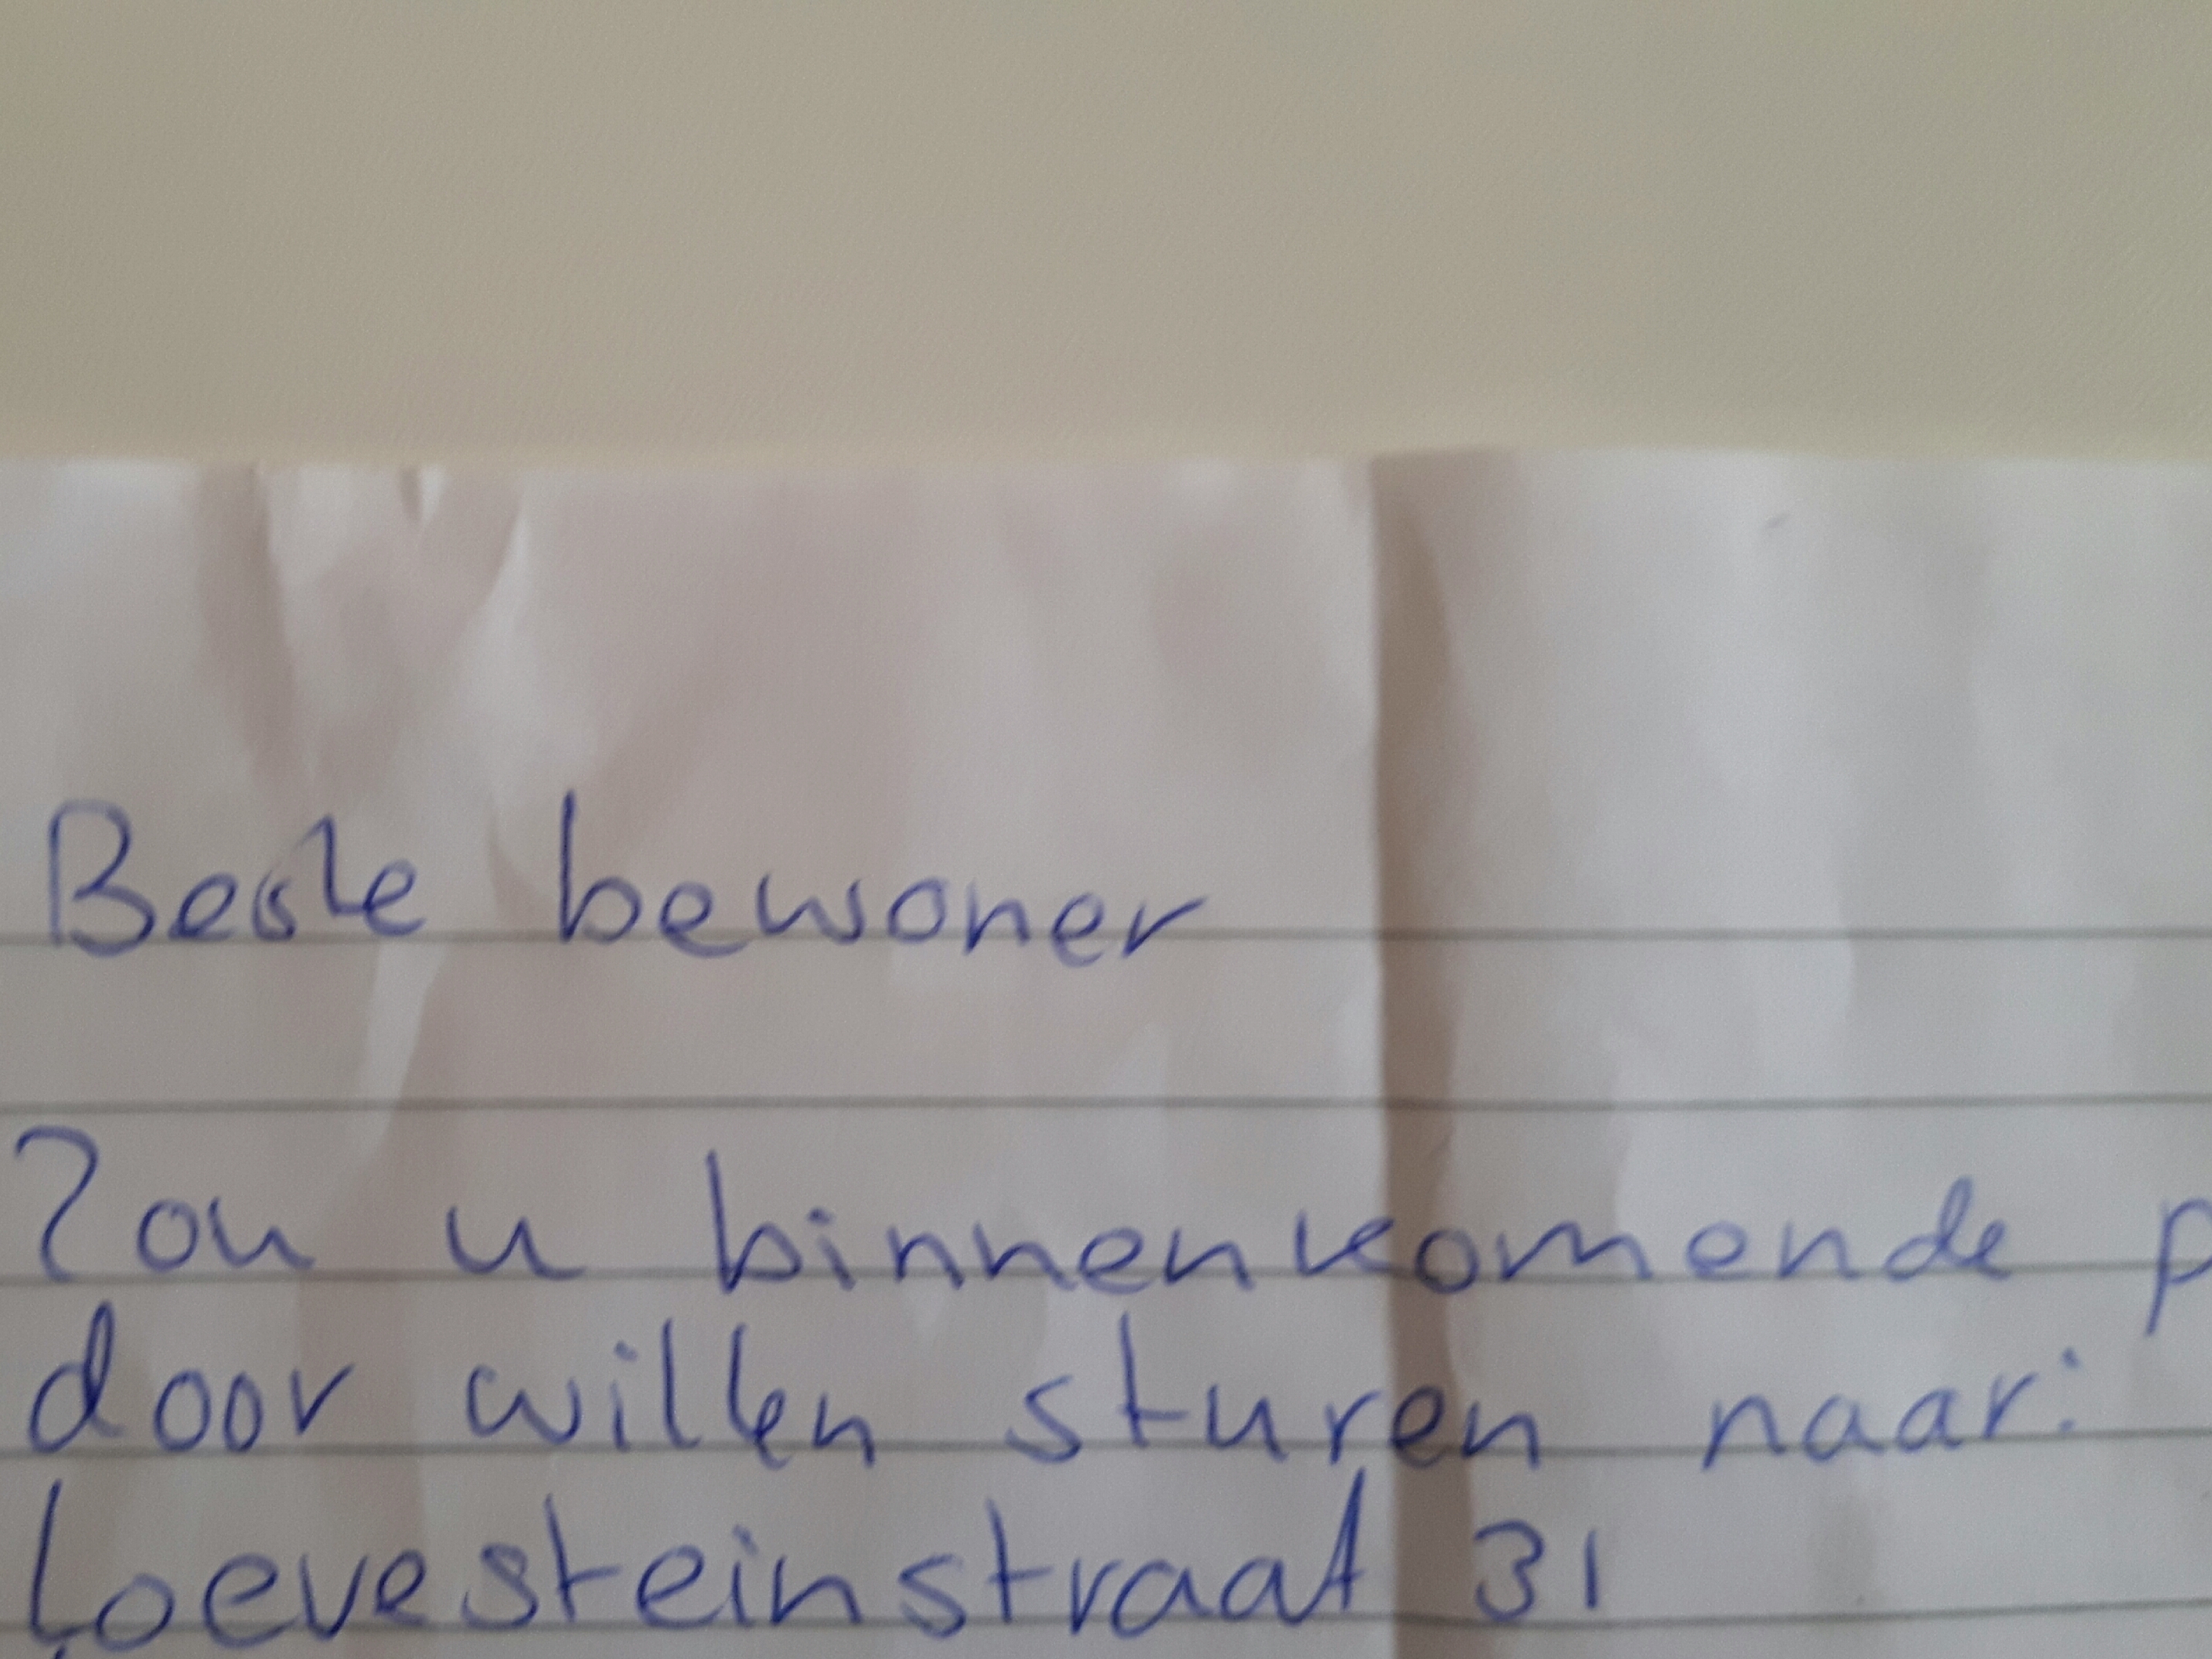 Beste bewoner
Zou u binnenkomende p
door willen sturen naar:
Loevesteinstraat 31